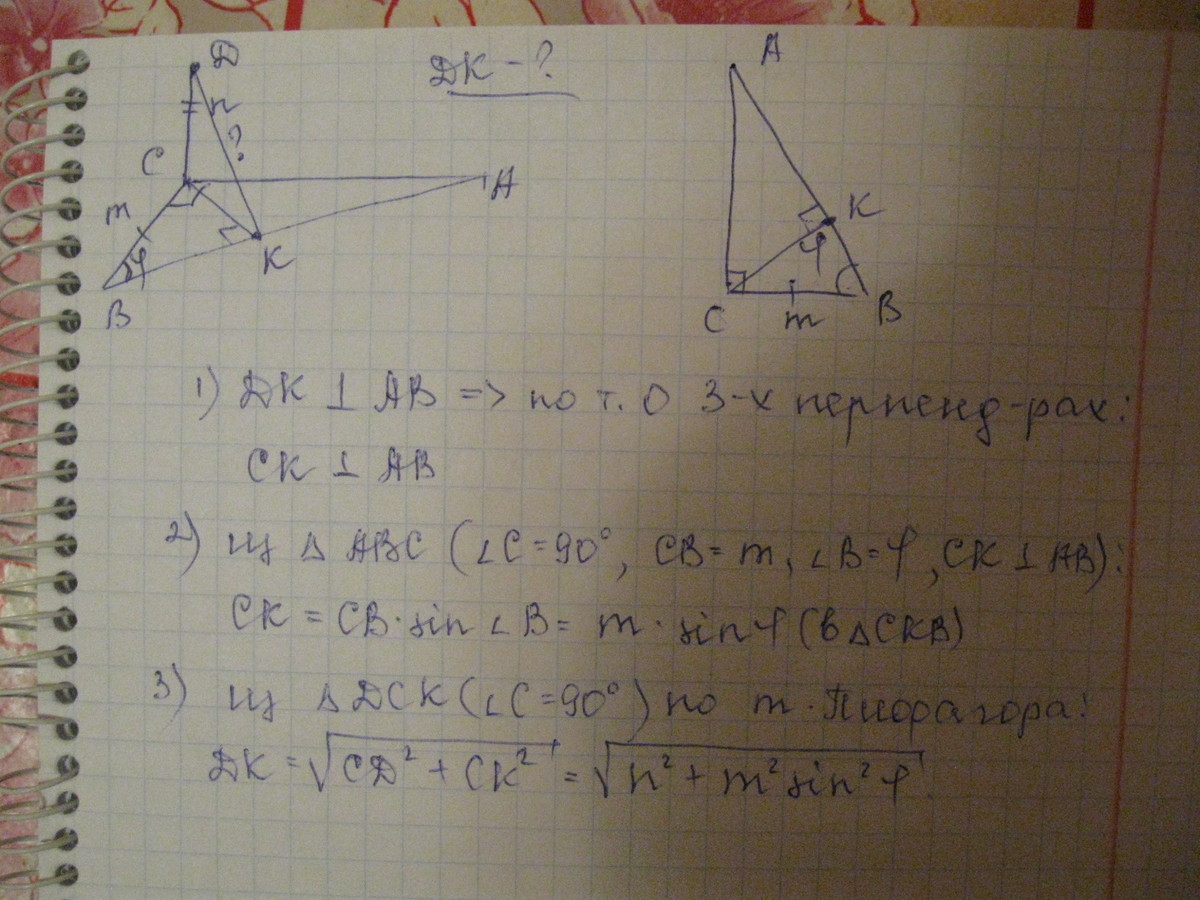 D
n
?
C
m
φ
B
K
A
DK – ?
A
K
φ
C
m
B
1) DK ⊥ AB => по т. о 3-х перпенд-рах:
CK ⊥ AB
2) из △ ABC (∠C = 90°, CB = m, ∠B = φ, CK ⊥ AB):
CK = CB · sin ∠B = m · sin φ (в △CKB)
3) из △DCK (∠C = 90°) по т. Пифагора:
DK = √(CD² + CK²) = √(n² + m² sin² φ).